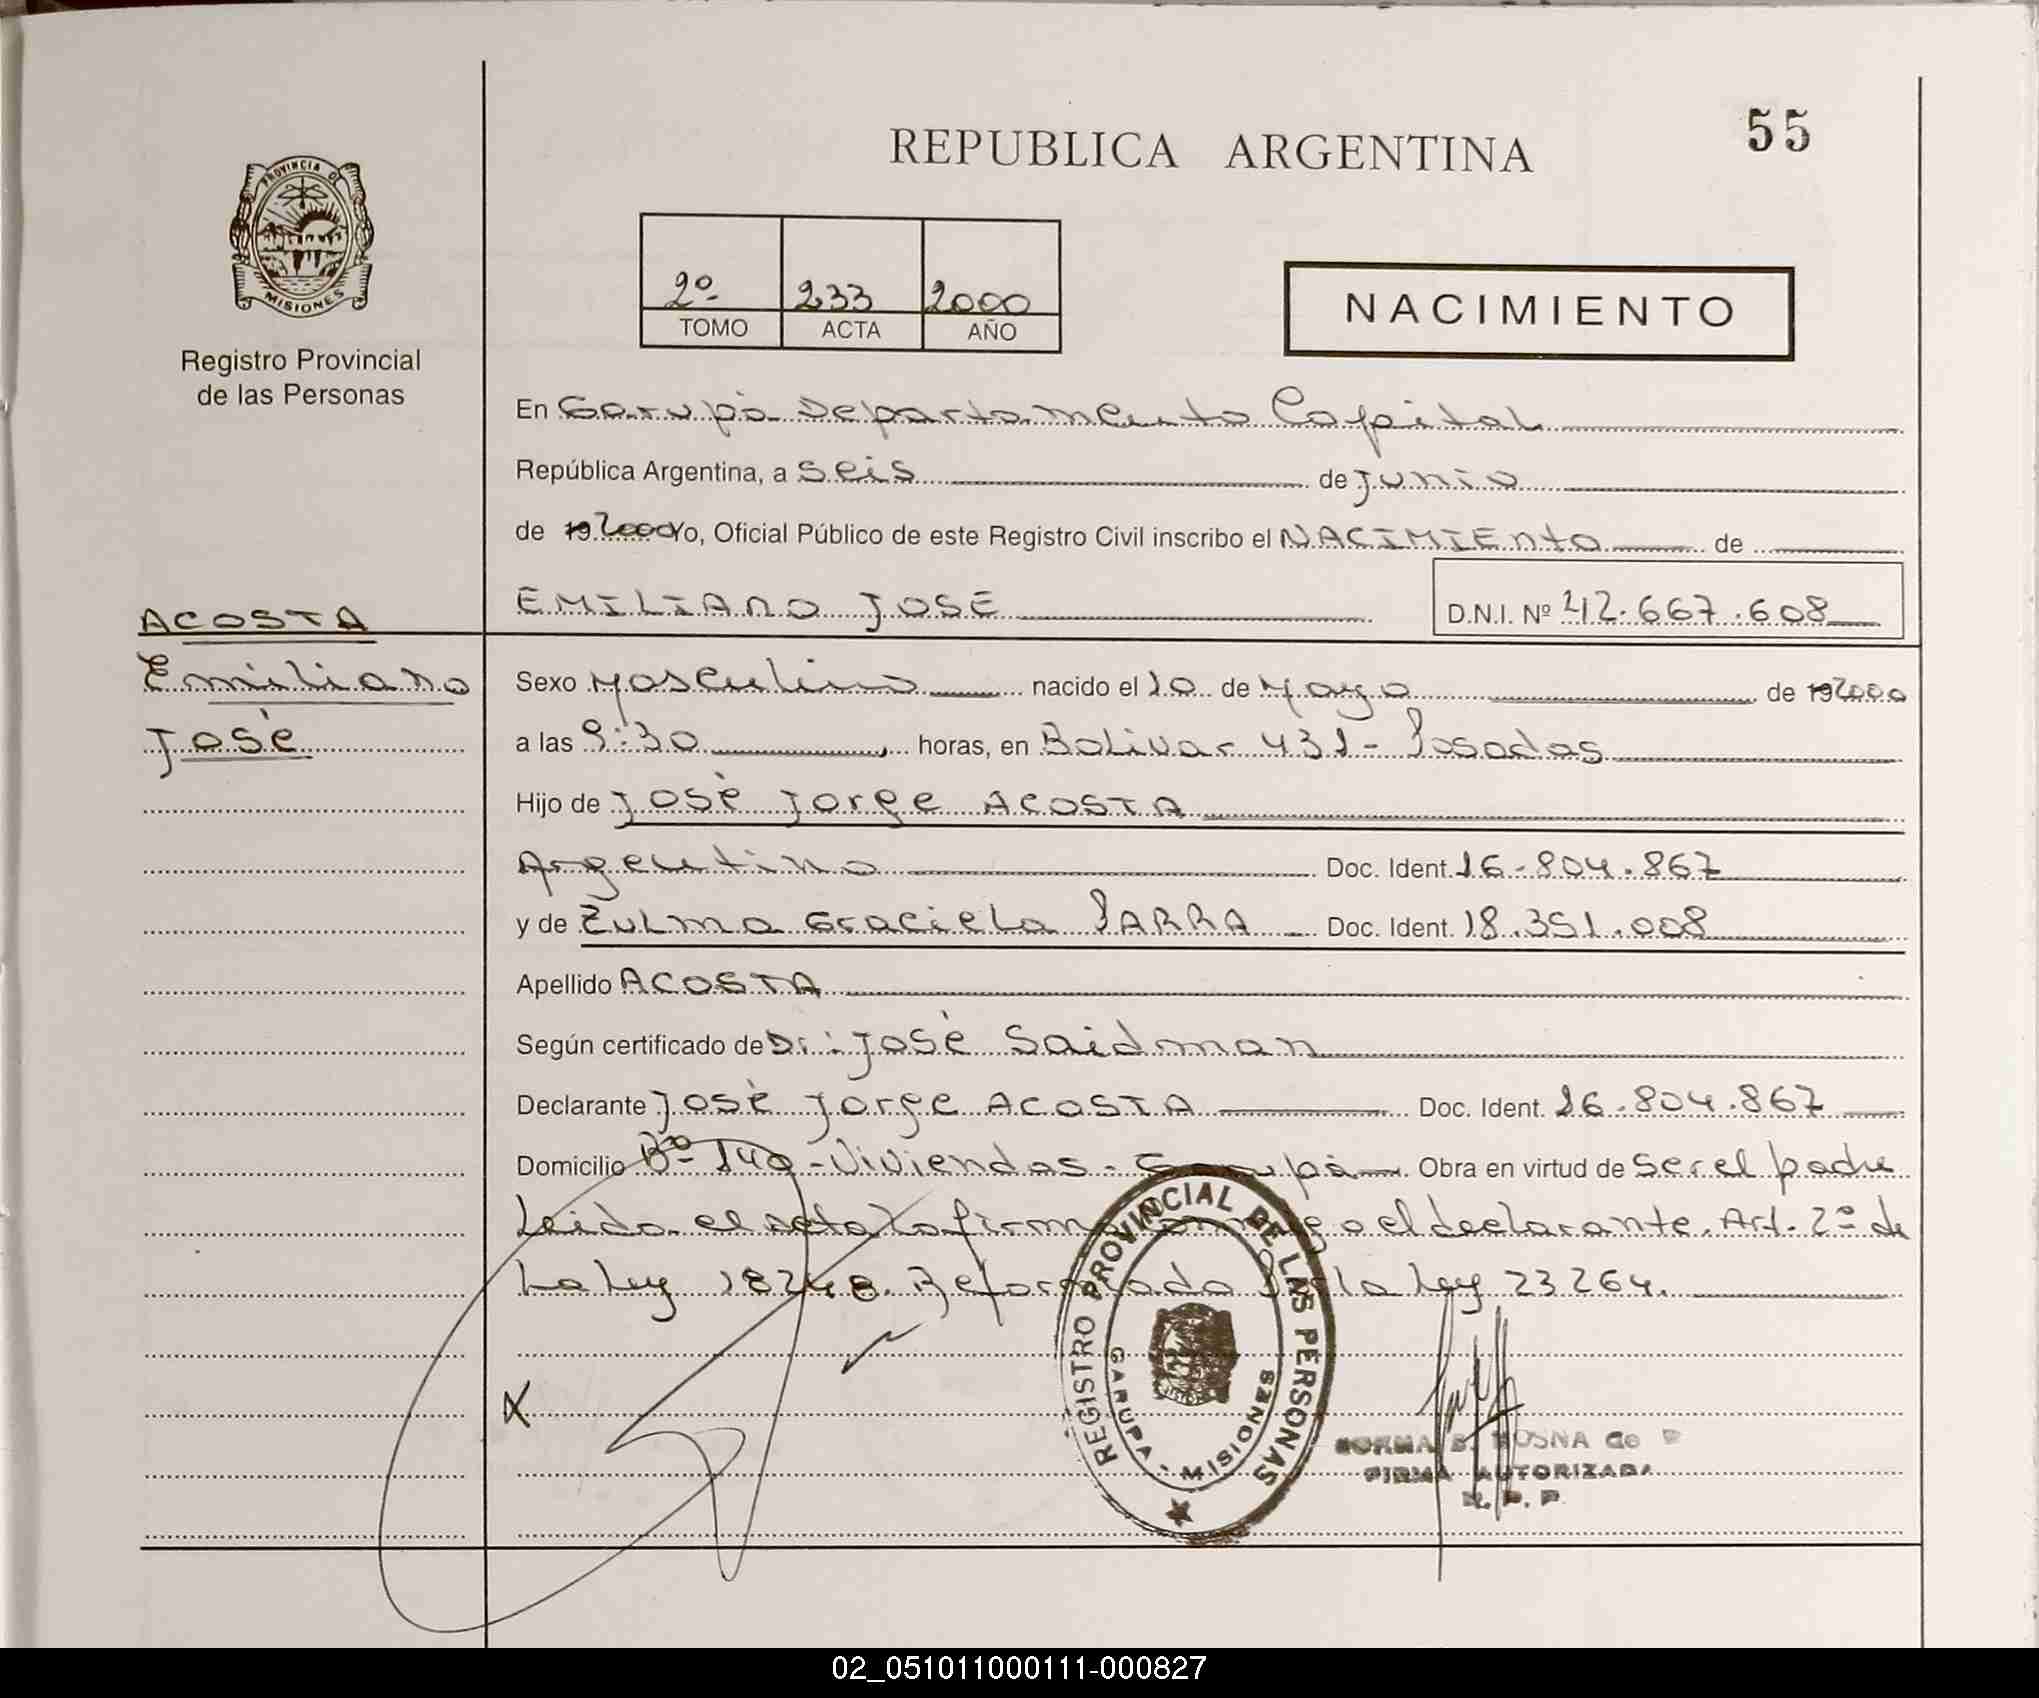 55
REPUBLICA ARGENTINA
PROVINCIA D
MISIONES
Registro Provincial
de las Personas
2º 233 2000
TOMO ACTA AÑO
NACIMIENTO
En Garupá Departamento Capital
República Argentina, a seis de junio
de 19 2000 Yo, Oficial Público de este Registro Civil inscribo el NACIMIENTO de
EMILIANO JOSÉ D.N.I. Nº 42.667.608
ACOSTA
Emiliano
José
Sexo Masculino nacido el 10 de Mayo de 19 2000
a las 9:30 horas, en Bolivar 431 - Posadas
Hijo de José Jorge ACOSTA
Argentino Doc. Ident. 16.804.867
y de Zulma Graciela PARRA Doc. Ident. 18.351.008
Apellido ACOSTA
Según certificado de Dr: José Saidman
Declarante José Jorge ACOSTA Doc. Ident. 16.804.867
Domicilio Bº 140 - Viviendas - Garupá Obra en virtud de ser el padre
Leida el acta la firma conmigo el declarante. Art. 2º de
La Ley 18248. Reformada Por la Ley 23264.
X
REGISTRO PROVINCIAL DE LAS PERSONAS
GARUPA - MISIONES
NORMA B. de P
FIRMA AUTORIZADA
R. P. P.
02_051011000111-000827